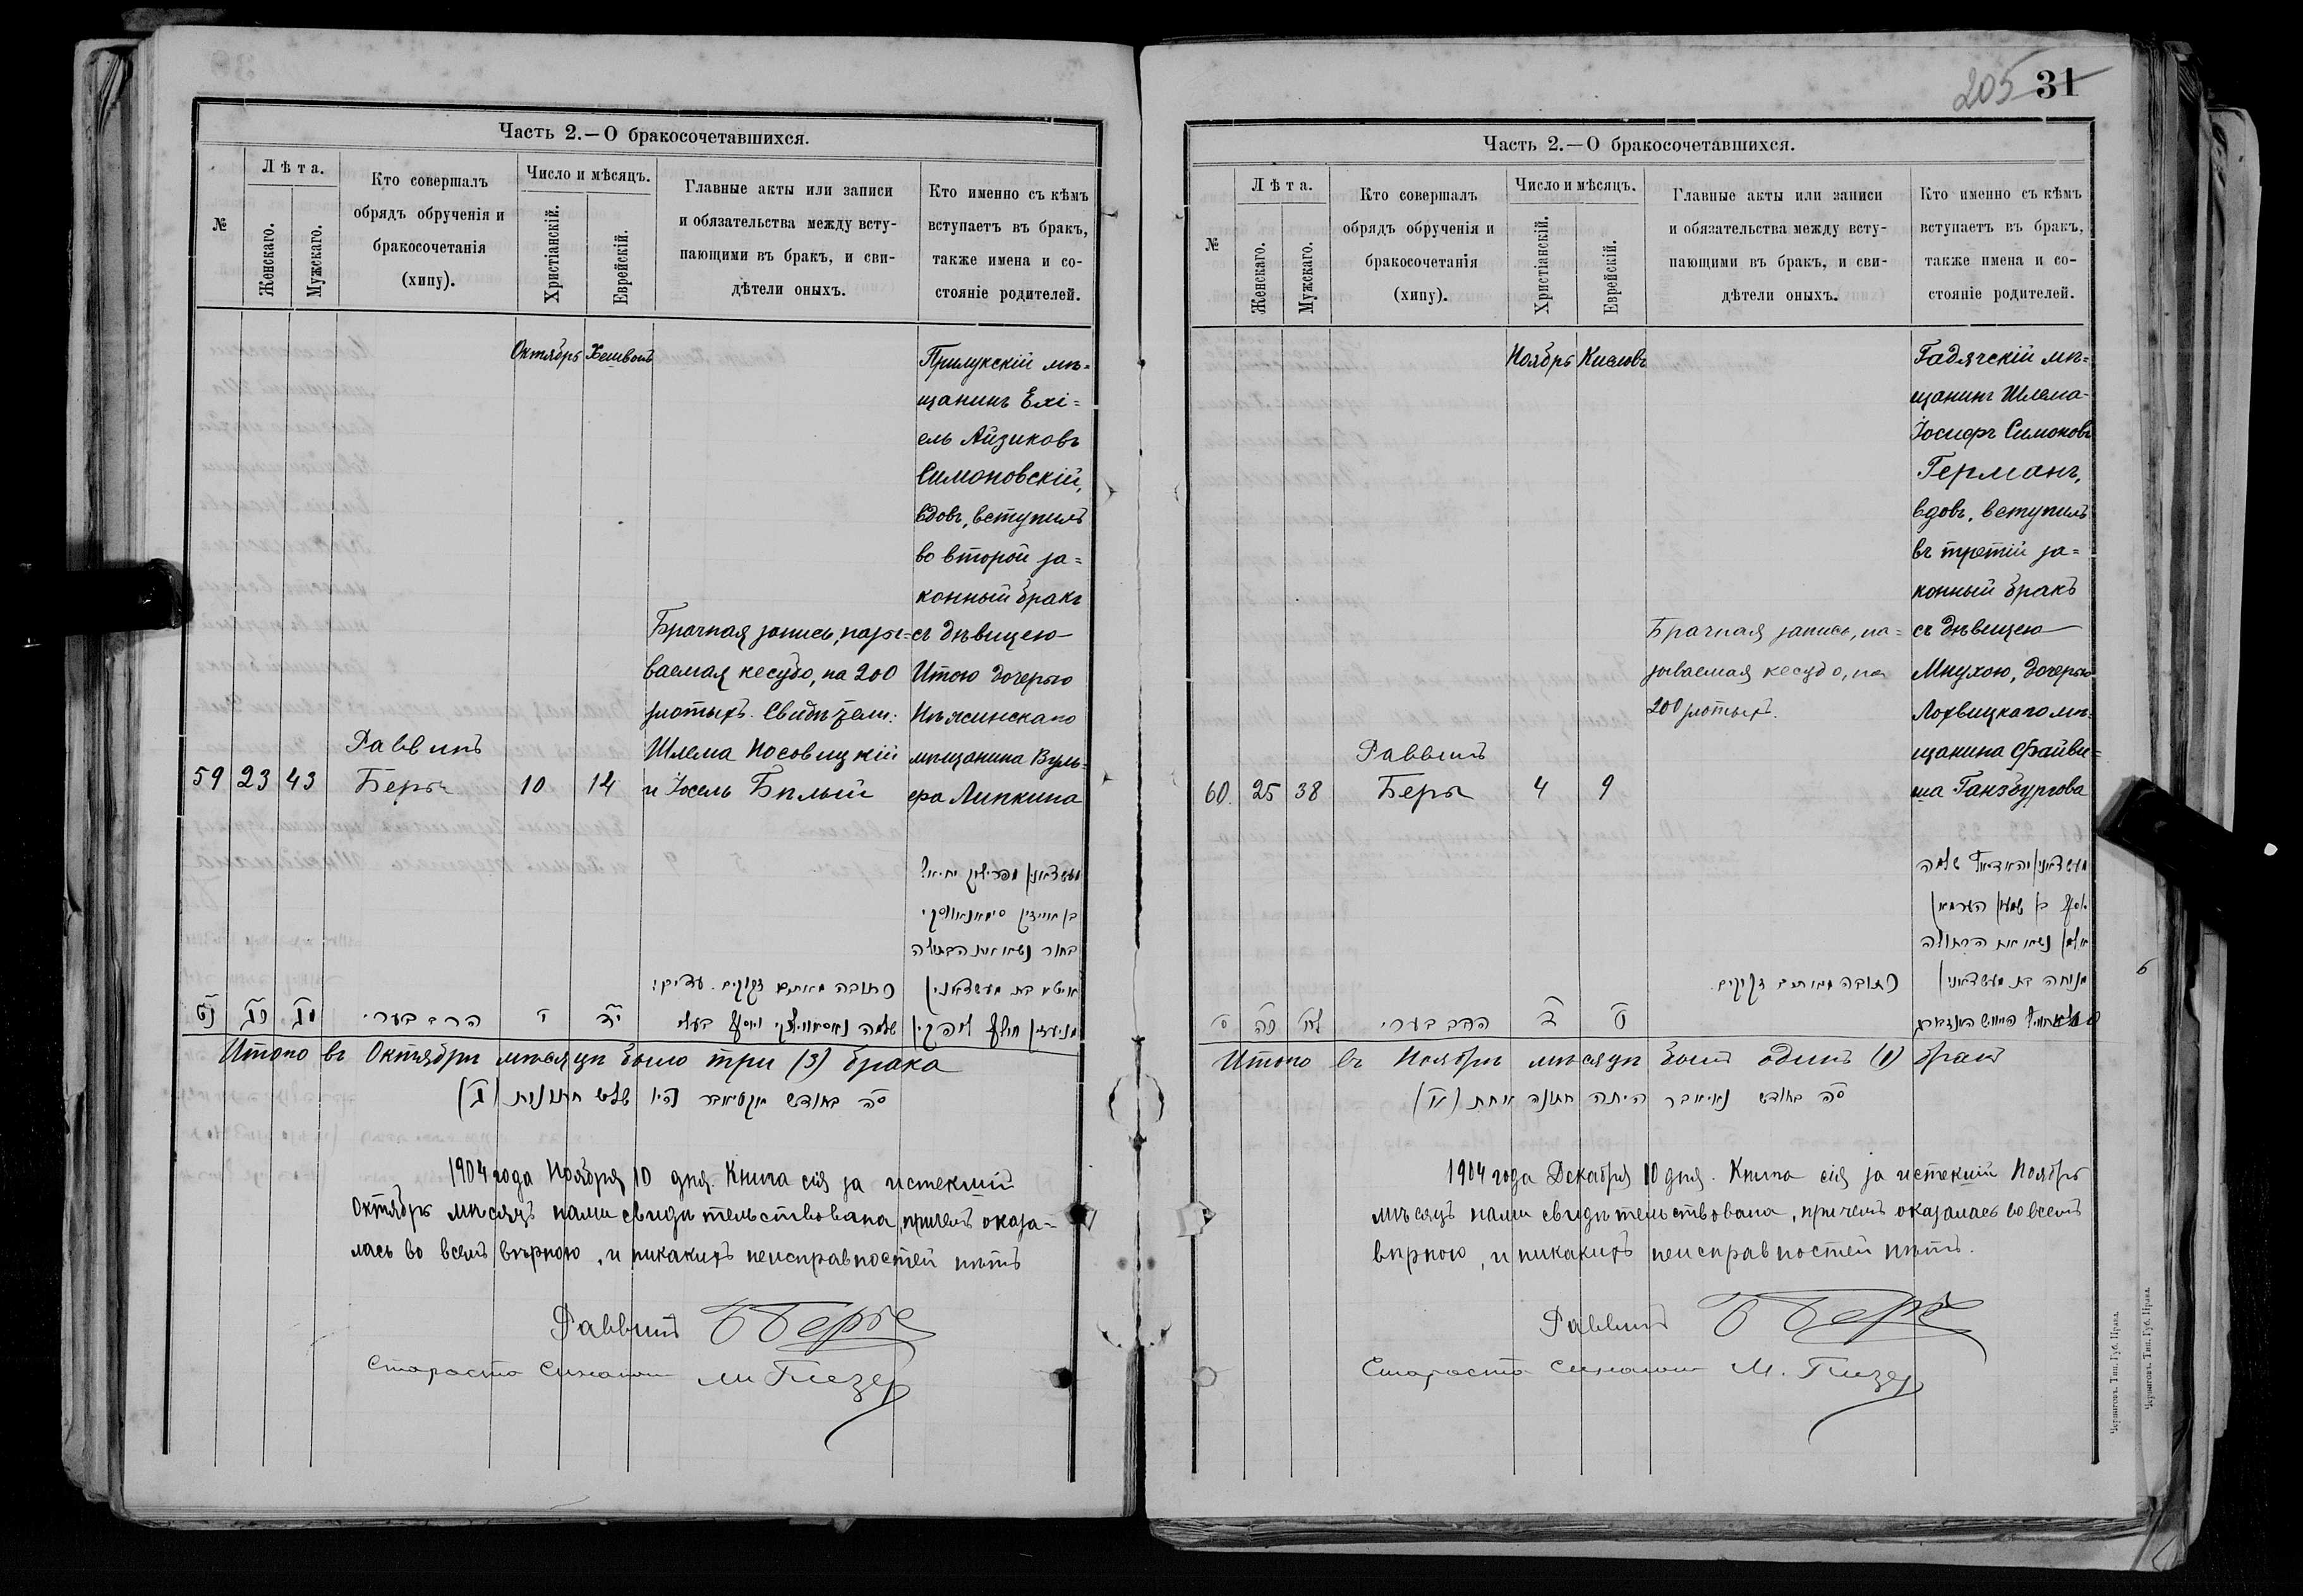 Часть 2.—О бракосочетавшихся.
№
Лѣта.
Женскаго.
Мужскаго.
Кто совершалъ
обрядъ обрученія и
бракосочетанія
(хипу).
Число и мѣсяцъ.
Христіанскій.
Еврейскій.
Главные акты или записи
и обязательства между всту-
пающими въ бракъ, и сви-
дѣтели оныхъ.
Кто именно съ кѣмъ
вступаетъ въ бракъ,
также имена и со-
стояніе родителей.
59 23 43
Раввинъ
Беръ
Октябрь Хешвонъ
10 14
Брачная запись, назы=
ваемая кесубо, на 200
злотыхъ. Свидѣтели:
Шлема Носовицкій
и Іосель Бѣлый
Прилукскій мѣ=
щанинъ Ехі=
ель Айзиковъ
Симоновскій,
вдовъ, вступилъ
во второй за=
конный бракъ
съ дѣвицею
Итою дочерью
Нѣжинскаго
мѣщанина Вуль=
фа Липкина
בן אייזיק סימאנאווסקי
בחור נשא את הבתולה
כתובה מאתים זקוקים. עדים:
נט כג מג הרב בערי י יד
Итого въ Октябрѣ мѣсяцѣ было три (3) брака
סה בחודש אקטיאבר היו שלש חתונות (ג)
1904 года Ноября 10 дня. Книга сія за истекшій
Октябрь мѣсяцъ нами свидѣтельствована, причемъ оказа-
лась во всемъ вѣрною, и никакихъ неисправностей нѣтъ
Раввинъ Б Беръ
Староста
205 31
Часть 2.—О бракосочетавшихся.
№
Лѣта.
Женскаго.
Мужскаго.
Кто совершалъ
обрядъ обрученія и
бракосочетанія
(хипу).
Число и мѣсяцъ.
Христіанскій.
Еврейскій.
Главные акты или записи
и обязательства между всту-
пающими въ бракъ, и сви-
дѣтели оныхъ.
Кто именно съ кѣмъ
вступаетъ въ бракъ,
также имена и со-
стояніе родителей.
60. 25 38
Раввинъ
Беръ
Ноябрь Кислевъ
4 9
Брачная запись, на=
зываемая кесубо, на
200 злотыхъ.
Гадячскій мѣ=
щанинъ Шлема-
Іосифъ Симоновъ
Германъ,
вдовъ, вступилъ
въ третій за=
конный бракъ
съ дѣвицею
Мнухою, дочерью
Лохвицкаго мѣ=
щанина Файви=
ша Ганзбургова
יוסף בן שמעון הערמאן
אלמן נשא את הבתולה
כתובה מאתים זקוקים.
ס כה לח הרב בערי ד ט
Итого въ Ноябрѣ мѣсяцѣ былъ одинъ (1) бракъ
סה בחודש נאיאבר היתה חתונה אחת (א)
1904 года Декабря 10 дня. Книга сія за истекшій Ноябрь
мѣсяцъ нами свидѣтельствована, причемъ оказалась во всемъ
вѣрною, и никакихъ неисправностей нѣтъ.
Раввинъ Б Беръ
Староста
Черниговъ. Тип. Губ. Правл.
Черниговъ. Тип. Губ. Правл.